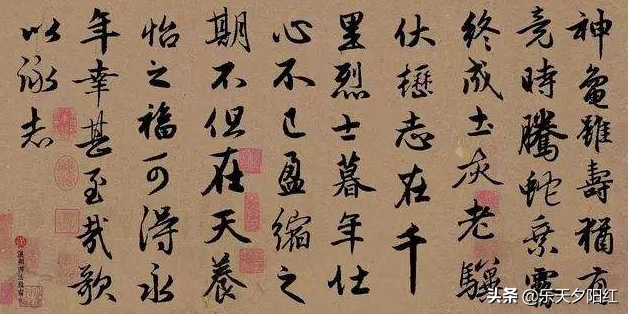 神龜雖壽猶有
竟時騰蛇乘霧
終成土灰老驥
伏櫪志在千
里烈士暮年壮
心不已盈縮之
期不但在天養
怡之福可得永
年幸甚至哉歌
以詠志
头条 @乐天夕阳红